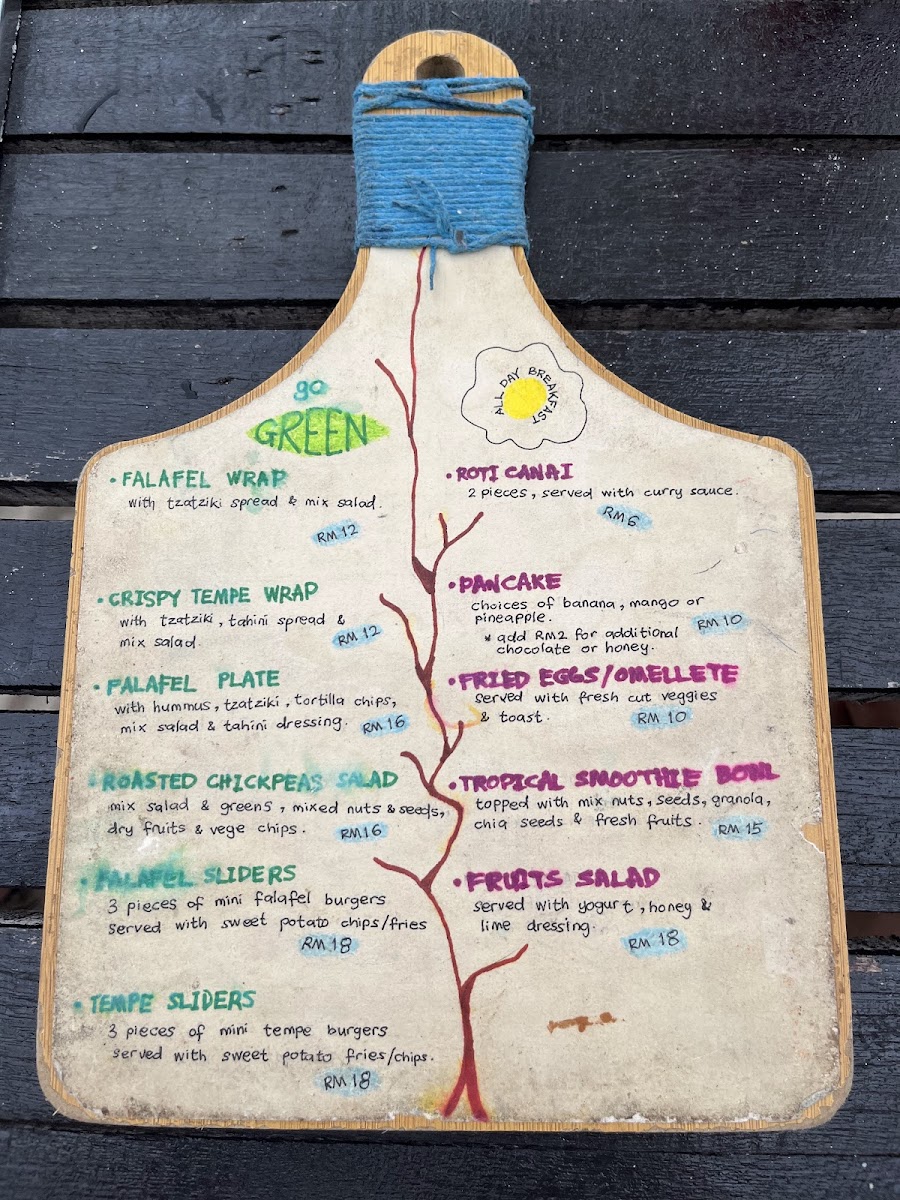 go
GREEN
• FALAFEL WRAP
with tzatziki spread & mix salad.
RM 12
• CRISPY TEMPE WRAP
with tzatziki, tahini spread &
mix salad.
RM 12
• FALAFEL PLATE
with hummus, tzatziki, tortilla chips,
mix salad & tahini dressing.
RM 16
• ROASTED CHICKPEAS SALAD
mix salad & greens, mixed nuts & seeds,
dry fruits & vege chips.
RM16
• FALAFEL SLIDERS
3 pieces of mini falafel burgers
served with sweet potato chips/fries
RM 18
• TEMPE SLIDERS
3 pieces of mini tempe burgers
served with sweet potato fries/chips.
RM 18
ALL DAY BREAKFAST
• ROTI CANAI
2 pieces, served with curry sauce.
RM 6
• PANCAKE
choices of banana, mango or
pineapple.
RM 10
* add RM2 for additional
chocolate or honey.
• FRIED EGGS/OMELLETE
served with fresh cut veggies
& toast.
RM 10
• TROPICAL SMOOTHIE BOWL
topped with mix nuts, seeds, granola,
chia seeds & fresh fruits.
RM 15
• FRUITS SALAD
served with yogurt, honey &
lime dressing.
RM 18